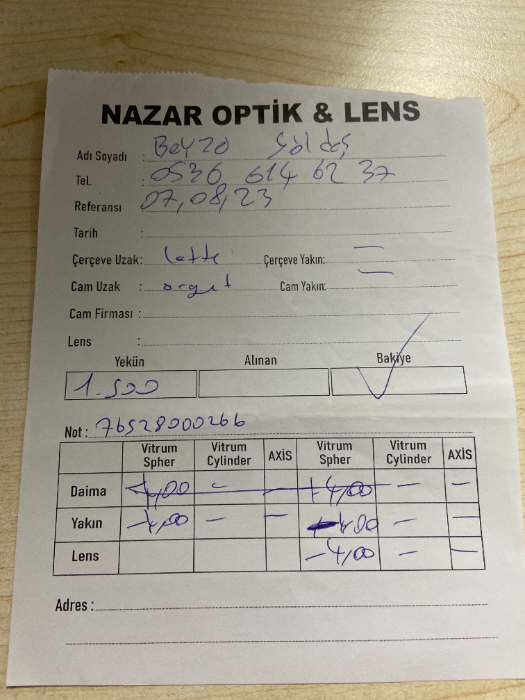 NAZAR OPTİK & LENS
Adı Soyadı : Beyza
Tel. : 0536 614 62 37
Referansı 07,08,23
Tarih :
Çerçeve Uzak: latte Çerçeve Yakın: —
Cam Uzak : Cam Yakın: —
Cam Firması :
Lens :
Yekün Alınan Bakiye
1.500
Not : 76528000266
Vitrum Spher Vitrum Cylinder AXİS Vitrum Spher Vitrum Cylinder AXİS
Daima — +4,00 — —
Yakın — — — —
Lens -4,00 — —
Adres :